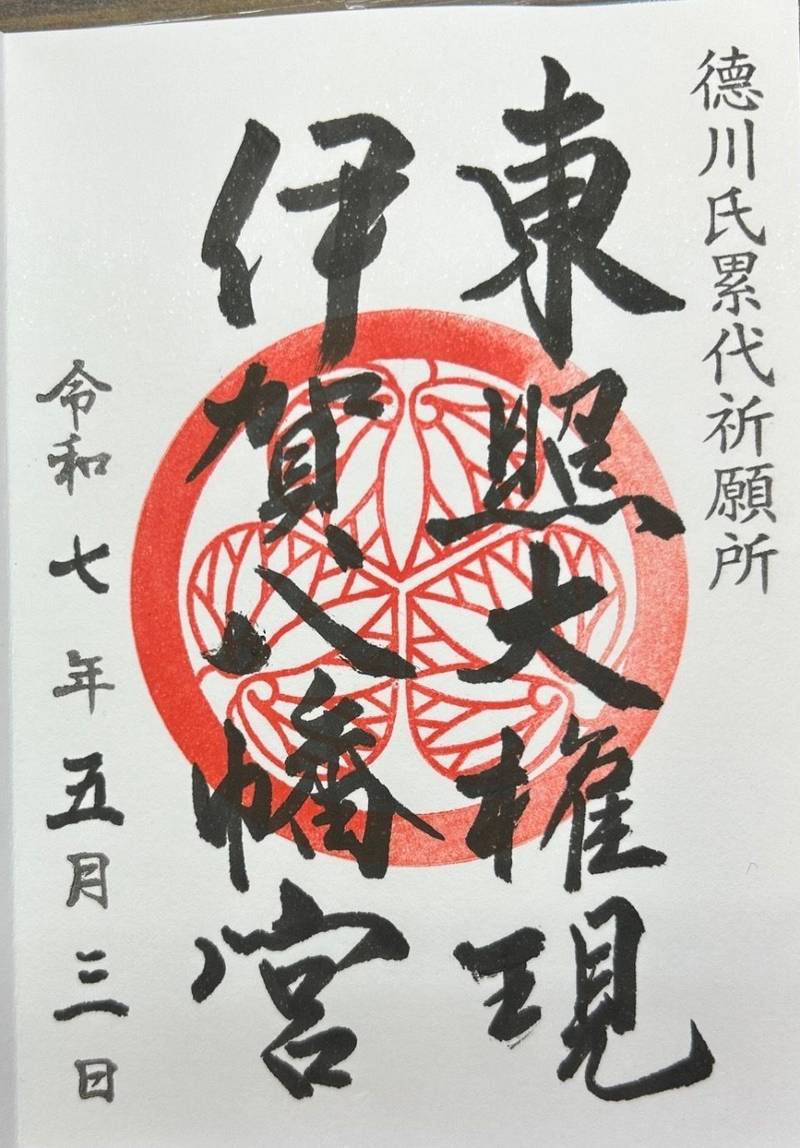 徳川氏累代祈願所
東照大権現
伊賀八幡宮
令和七年五月三日